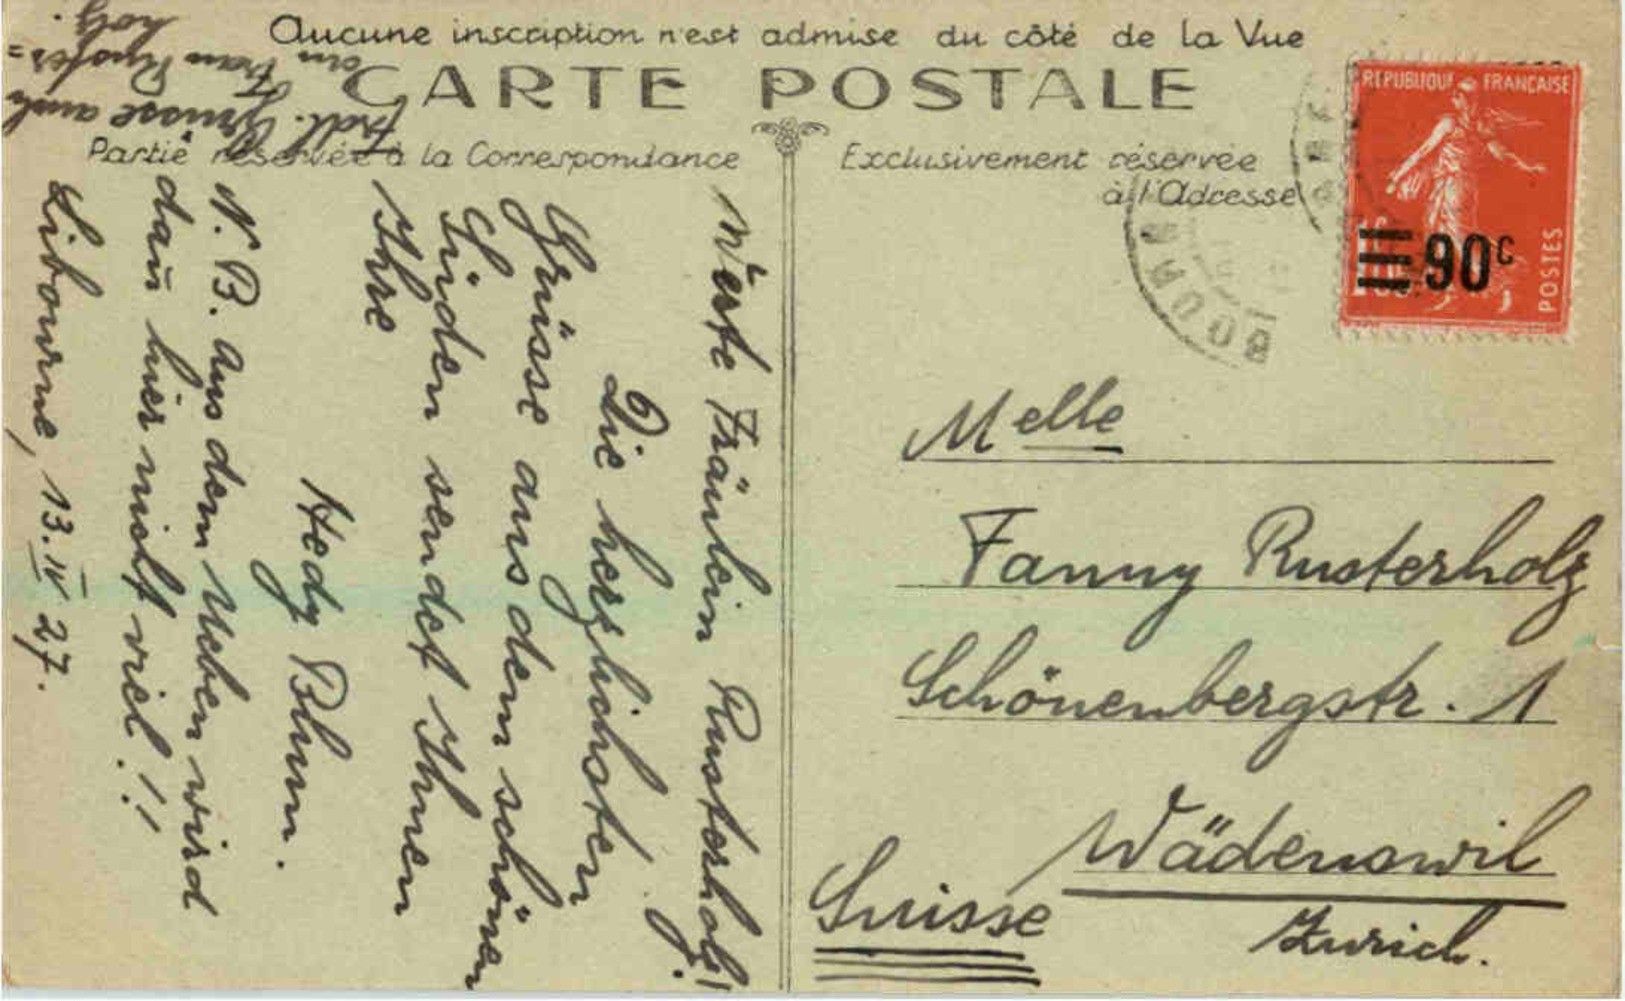 Aucune inscription n'est admise du côté de la Vue
CARTE POSTALE
Partie réservée à la Correspondance
Exclusivement réservée
à l'Adresse
REPUBLIQUE FRANÇAISE
POSTES
90c
Werte Fräulein Rusterholz!
Die herzlichsten
Grüsse aus dem schönen
Süden sendet Ihnen
Ihre
Hedy Blum.
N.B. Aus dem Ueben wird
dañ hier nicht viel!!
Libourne, 13. IV 27.
frdl. Grüsse auch
an Frau Ruster=
holz.
Melle
Fanny Rusterholz
Schönenbergstr. 1
Wädenswil
Zurich.
Suisse